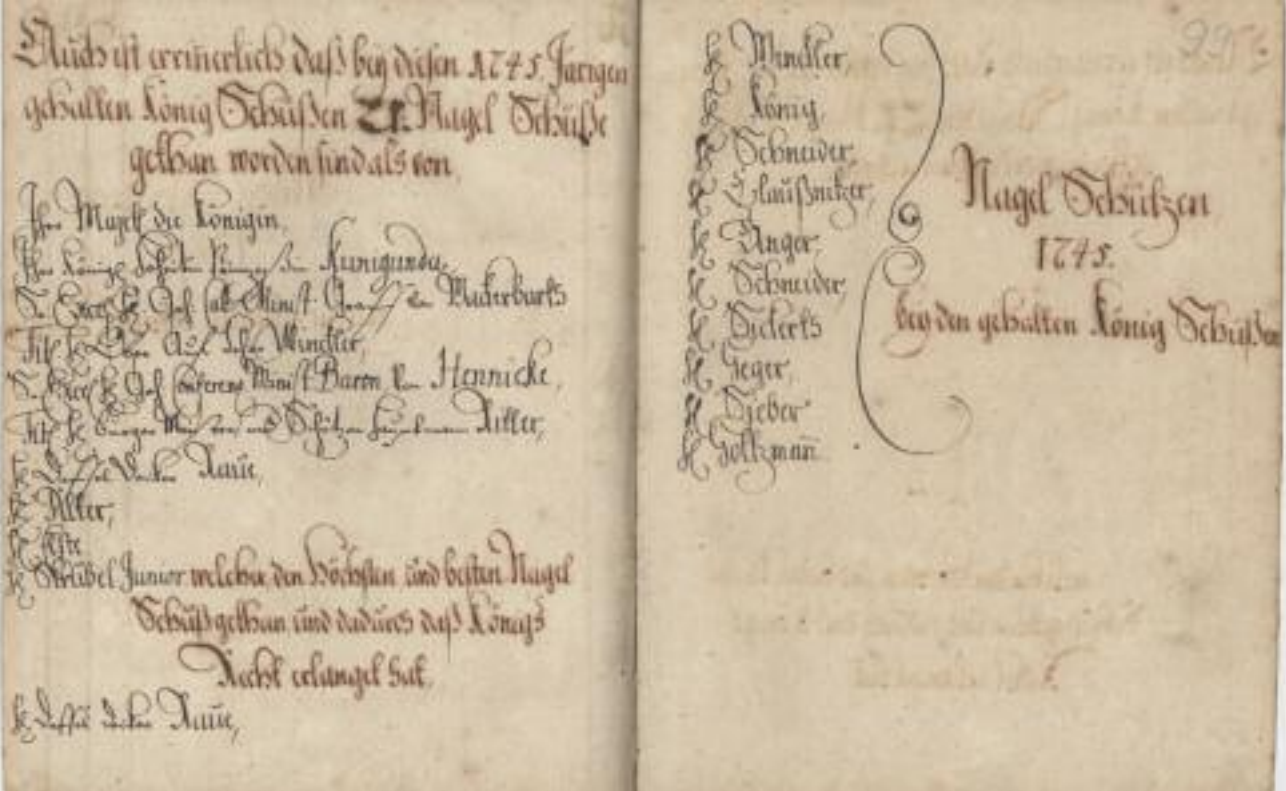 Auch ist errinerlich daß bey diesen 1745. Järigen
gehalten König Schüßen 21. Nagel Schüße
gethan worden sind als von
Ihro Majest die Königin,
Ihro Königl Hoheiten Kunigunda,
Se Excel H Geh Cab Minist Graff von Wackerbarts
Titl H Winckler,
Se Excel H Geh Conferenz Minist Baron von Hennicke,
Titl H Burger Meister und Schützen Hauptmann Ritter,
H Raüe,
H Ritter,
H
H Strübel Junior welcher den Höchsten und besten Nagel
Schuß gethan und dadurch daß Königs
Recht erlanget hat.
H Raüe,
H Winckler,
H König,
H Schneider,
H Claußnitzer,
H Unger,
H Schneider,
H
H Geger,
H Sieber
H Holtzman̄
Nagel Schützen
1745.
bey den gehalten König Schüßen